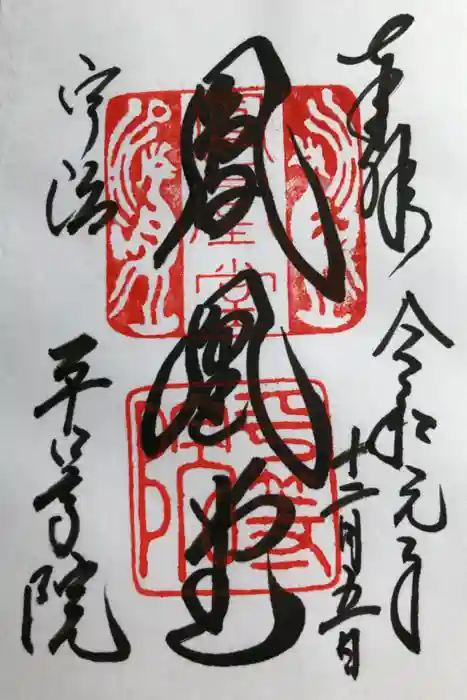 奉拝
令和元年
十二月五日
鳳凰堂
鳳凰堂
平等院
宇治
平等院